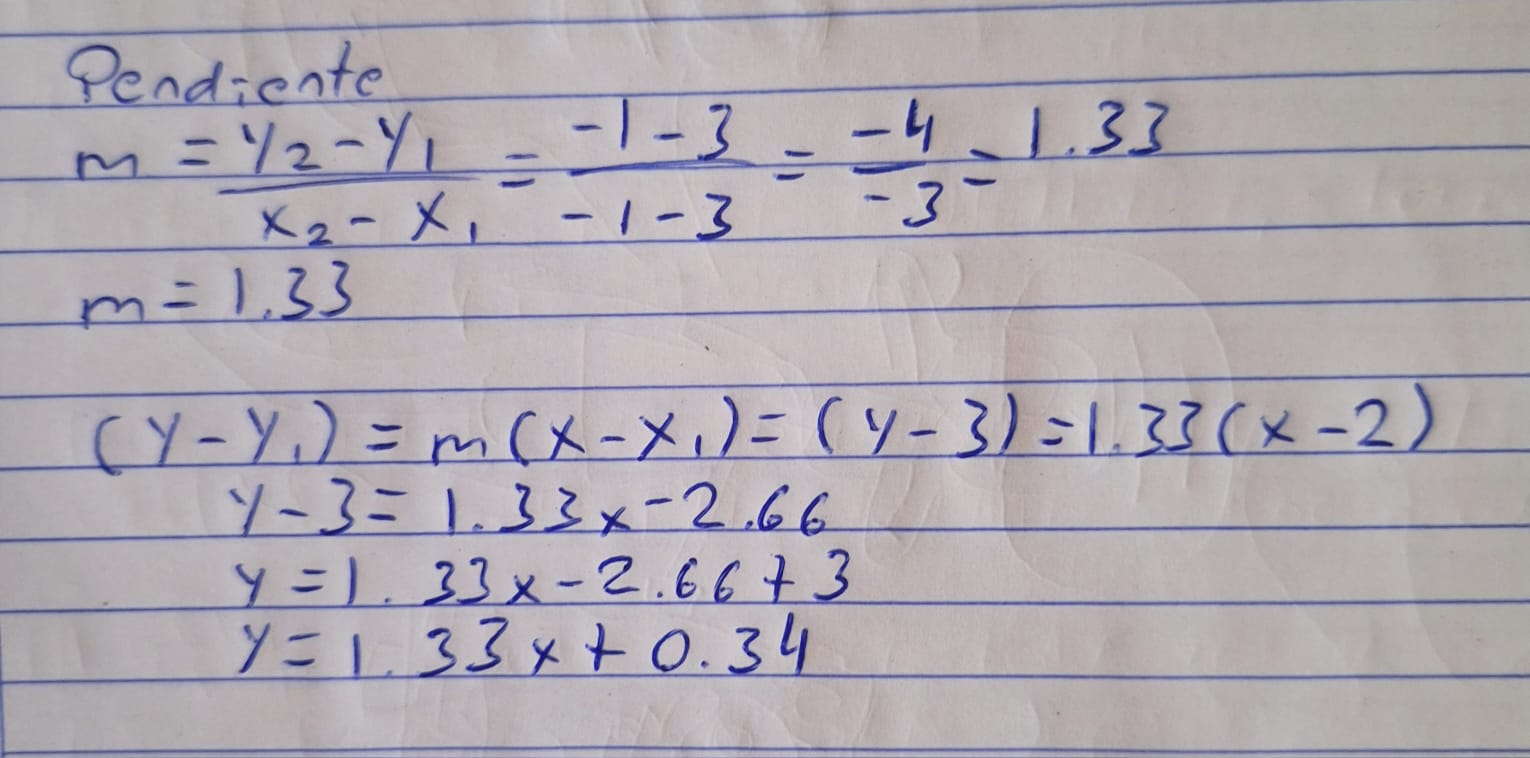 Pendiente
m = y₂-y₁/x₂-x₁ = -1-3/-1-3 = -4/-3 = 1.33
m = 1.33
(y-y₁) = m(x-x₁) = (y-3) = 1.33(x-2)
y-3 = 1.33x-2.66
y = 1.33x-2.66+3
y = 1.33x+0.34